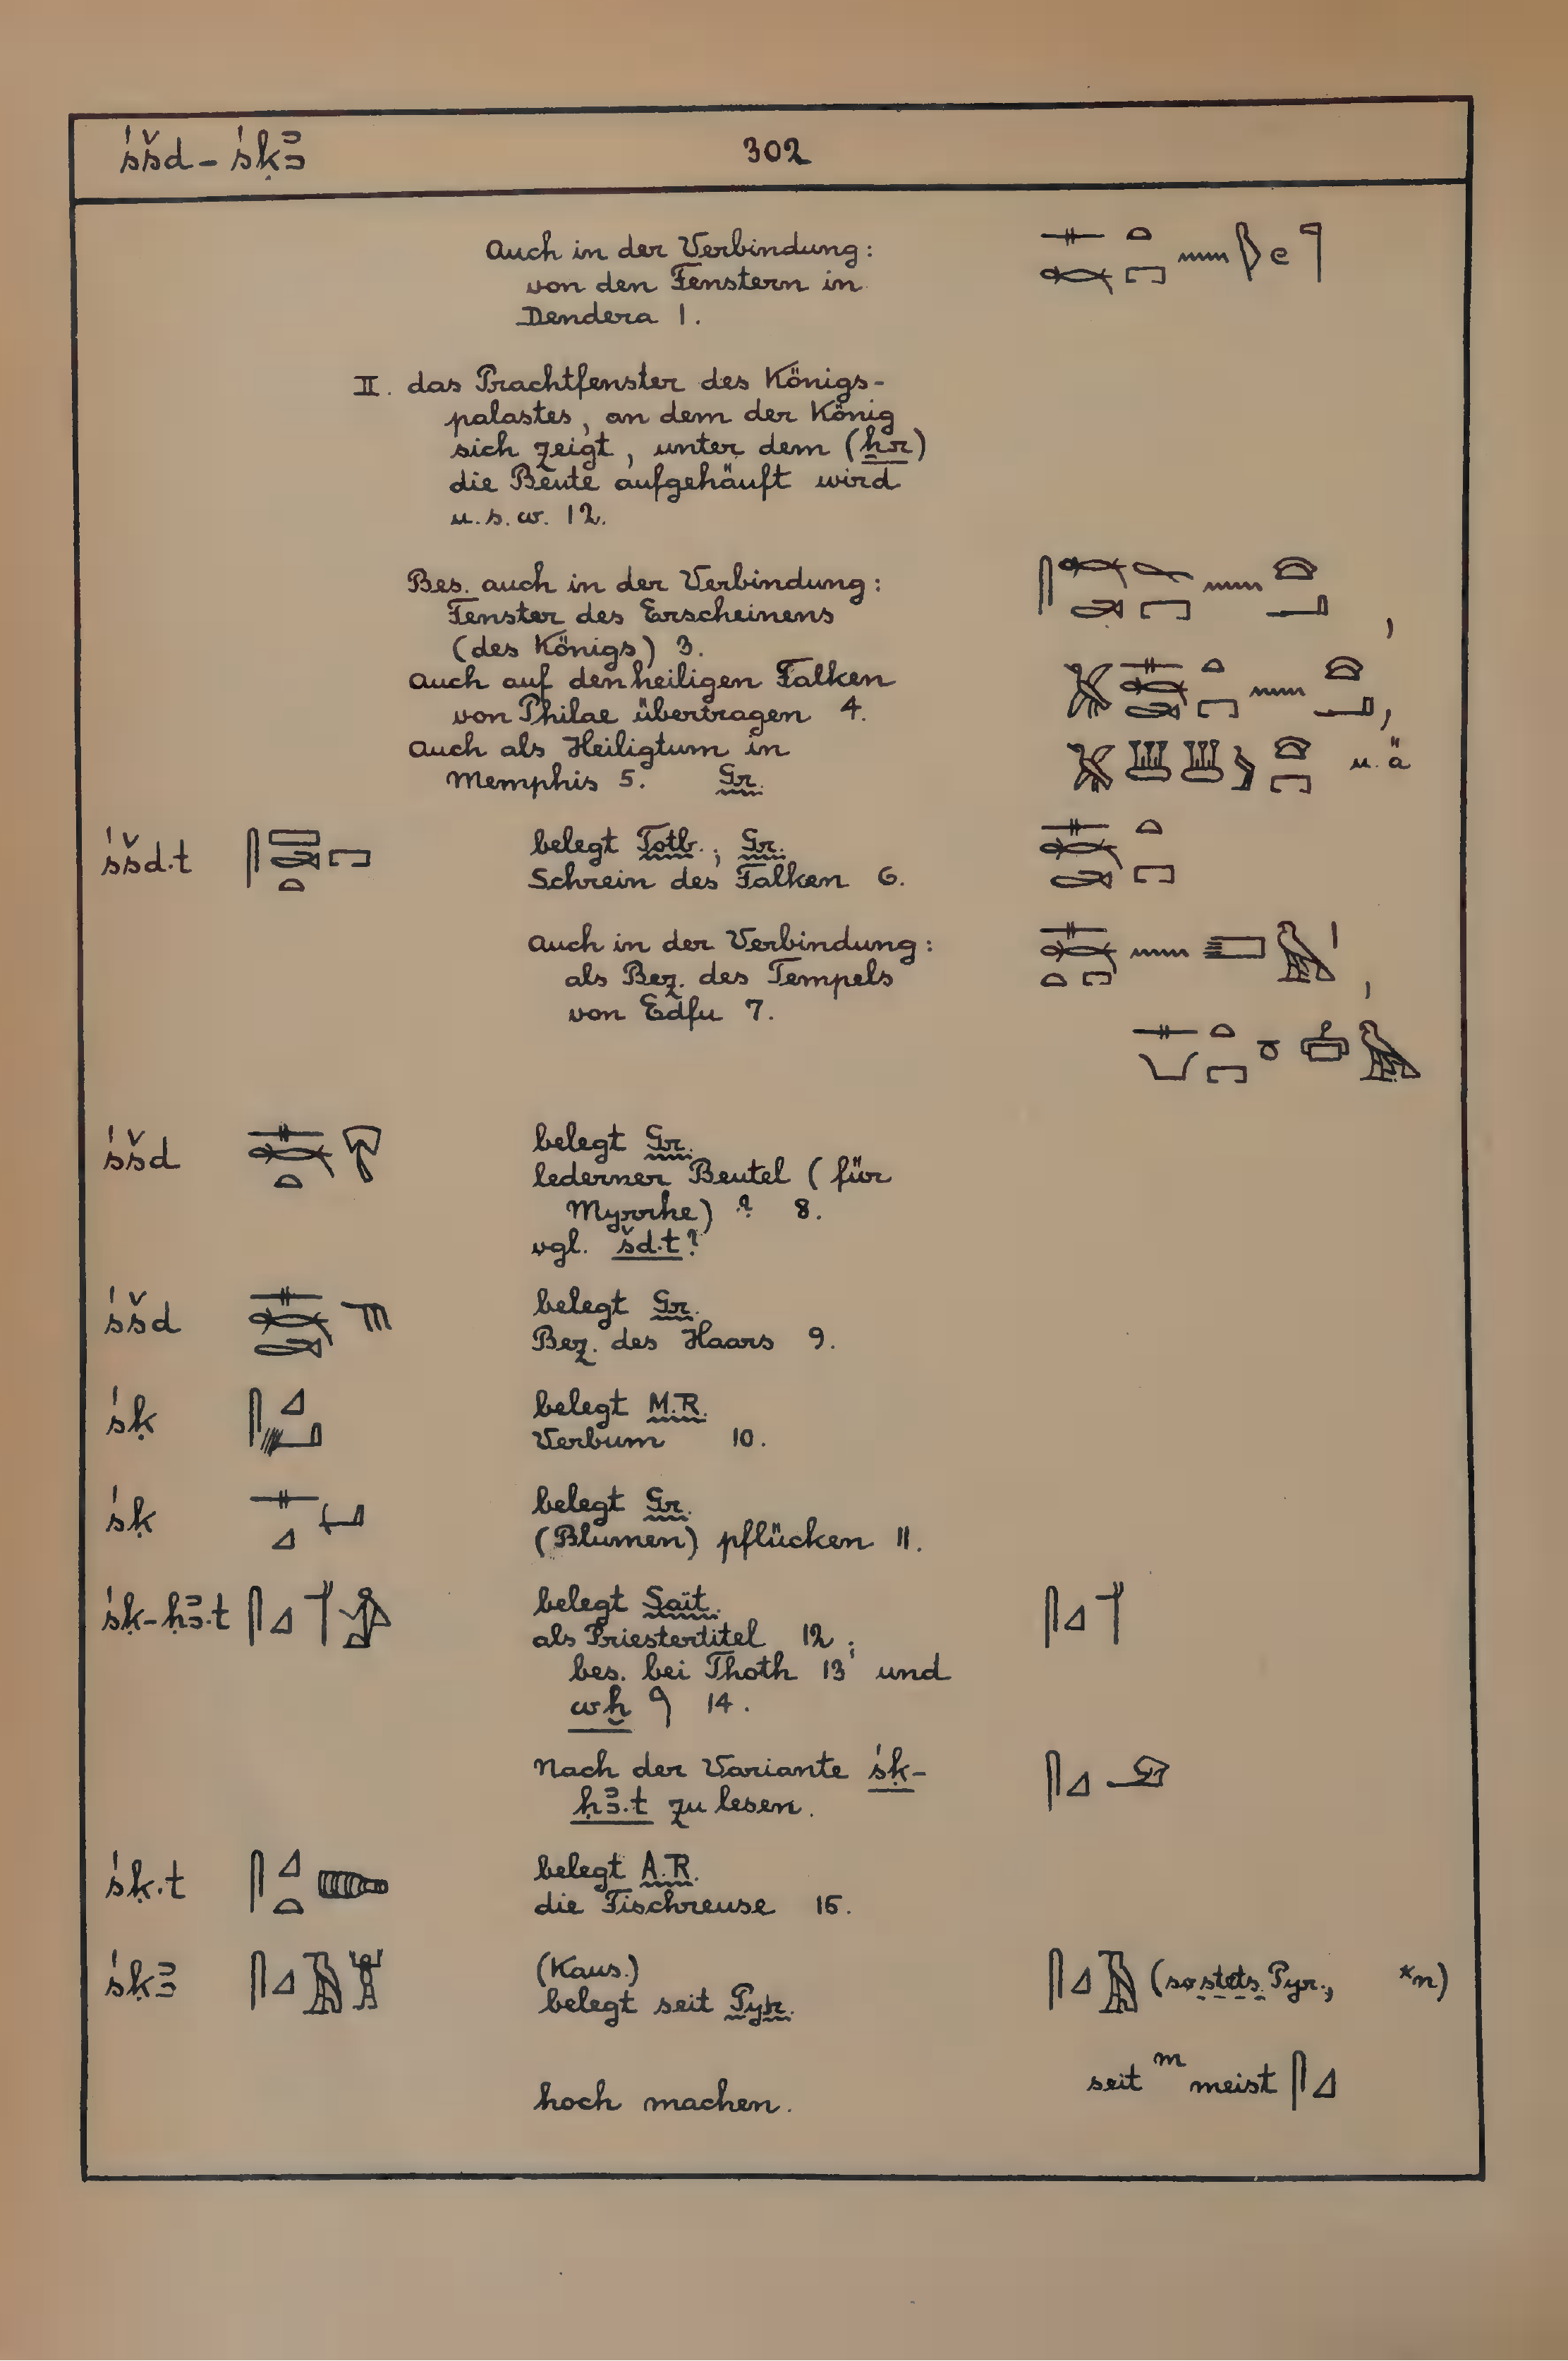 śšd - śḳꜣ
302
Auch in der Verbindung:
von den Fenstern in
Dendera 1.
II. das Prachtfenster des Königs-
palastes, an dem der König
sich zeigt, unter dem (ẖr)
die Beute aufgehäuft wird
u.s.w. 12.
Bes. auch in der Verbindung:
Fenster des Erscheinens
(des Königs) 3.
Auch auf den heiligen Falken
von Philae übertragen 4.
Auch als Heiligtum in
Memphis 5. Gr.
u. ä
śšd.t belegt Totb.; Gr.
Schrein des Falken 6.
Auch in der Verbindung:
als Bez. des Tempels
von Edfu 7.
śšd belegt Gr.
lederner Beutel (für
Myrrhe) ? 8.
vgl. šd.t?
śšd belegt Gr.
Bez. des Haars 9.
śḳ belegt M.R.
Verbum 10.
śḳ belegt Gr.
(Blumen) pflücken 11.
śḳ-ḥꜣ.t belegt Sait.
als Priestertitel 12;
bes. bei Thoth 13 und
wḫ 14.
Nach der Variante śḳ-
ḥꜣ.t zu lesen.
śḳ.t belegt A.R.
die Fischreuse 15.
śḳꜣ (Kaus.) (so stets Pyr., *n)
belegt seit Pyr.
seit m meist
hoch machen.